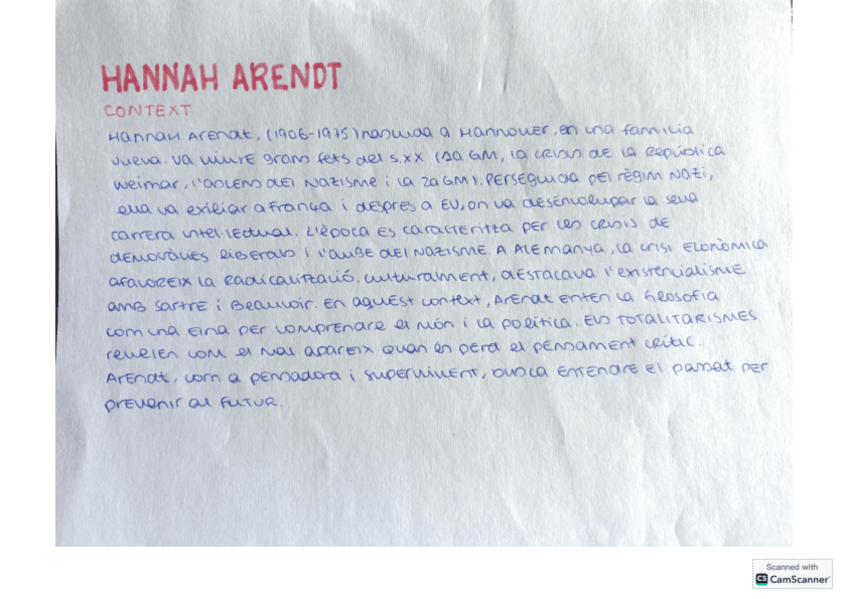 HANNAH ARENDT
CONTEXT
Hannah Arendt, (1906-1975) nascuda a Hannover, en una família
jueva. Va viure grans fets del s.XX (1a GM, la crisis de la República
Weimar, l'ascens del Nazisme i la 2a GM). Perseguida pel règim nazi,
ella va exiliar a França i després a EU, on va desenvolupar la seva
carrera intel·lectual. L'època es caracteritza per les crisis de
democràcies liberals i l'auge del nazisme. A Alemanya, la crisi econòmica
afavoreix la radicalització. Culturament, destacava l'existencialisme
amb Sartre i Beauvoir. En aquest context, Arendt enten la filosofia
com una eina per comprendre el món i la política. Els totalitarismes
revelen com el mal apareix quan es perd el pensament crític.
Arendt, com a pensadora i supervivent, busca entendre el passat per
prevenir al futur.
Scanned with
CS CamScanner